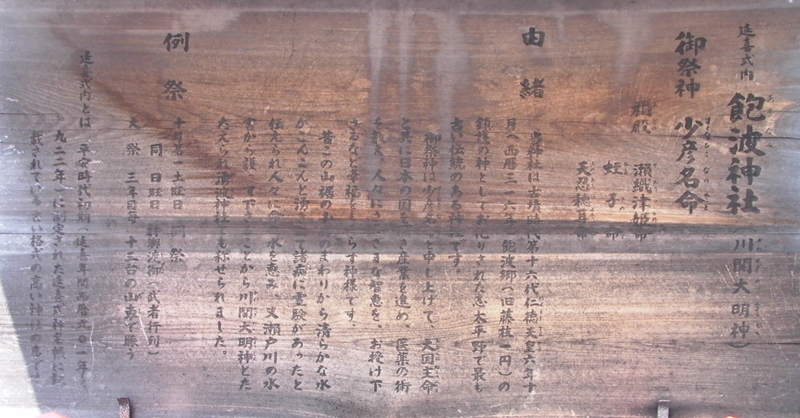 延喜式内 飽波神社(川関大明神)
御祭神 少彦名命
相殿 瀬織津姫命
蛭子命
天忍穂耳命
由緒
当社は古墳時代第十六代仁徳天皇六年十
月(西暦三一八年)飽波郷(旧藤枝一円)の
鎮護の神としてお祀りされた志太平野で最も
古い伝統のある神社です。
御祭神は少彦名命と申し上げて、大国主命
と共に日本の国を 産業を進め、医薬の術
を教え、人々に 智恵を、お授け下
さるなど幸福を らす神様です。
昔この山裾の まわりから清らかな水
がこんこんと湧 て諸病に霊験があったと
伝えられ人々に 水を恵み、又瀬戸川の水
害から護って下さることから川関大明神とた
たえられ湧波神社とも称せられました。
例祭
十月第一土曜日 祭
同 日曜日 神輿渡御(武者行列)
大祭 三年目毎 十三台の山車で賑う
延喜式内とは 平安時代初期(延喜年間西暦九〇一年~
九二二年)に制定された延喜式神名帳に記
載されている 格式の高い神社の意です